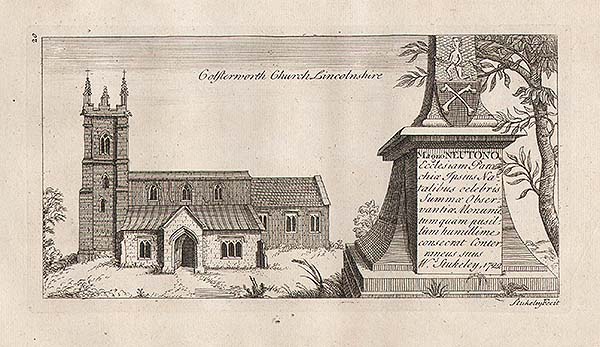 20
Colsterworth Church Lincolnshire
Magno NEUTONO
Ecclesiam Paro
chiæ Ipsius Na
talibus celebris
Summæ Obser
vantiæ Monume
tum quam pusil
lum humillime
consecrat Conter
raneus suus
Wm. Stukeley, 1722
Stukeley fecit